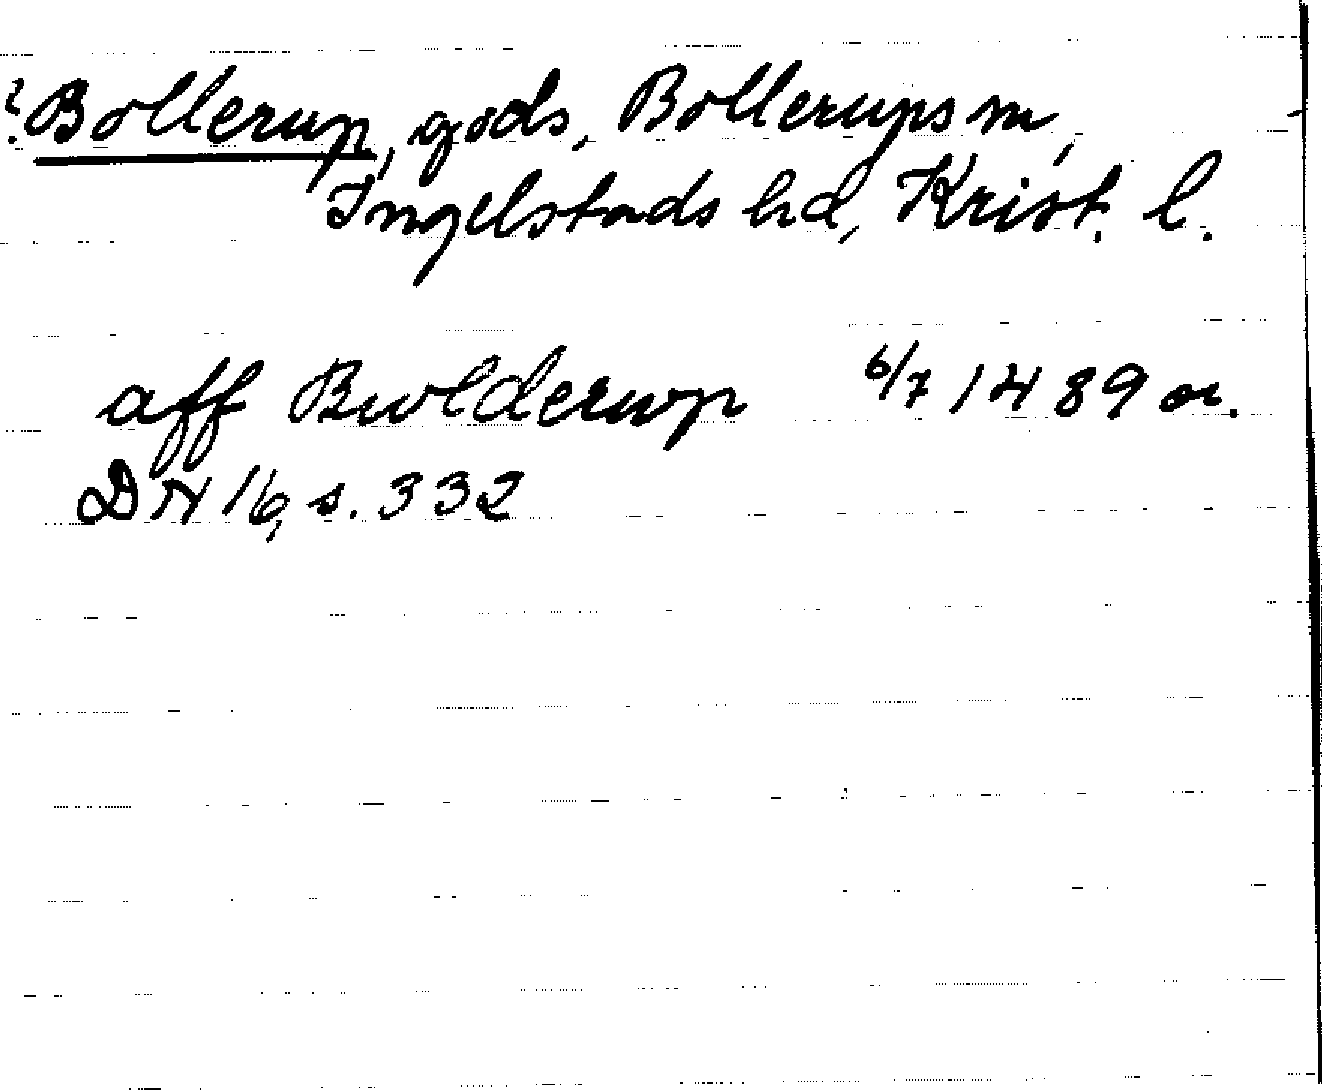 ? Bollerup, gods, Bollerups sn,
Ingelstads hd, Krist. l.
aff Bwlderwp 6/7 1489 or.
DN 16, s. 332